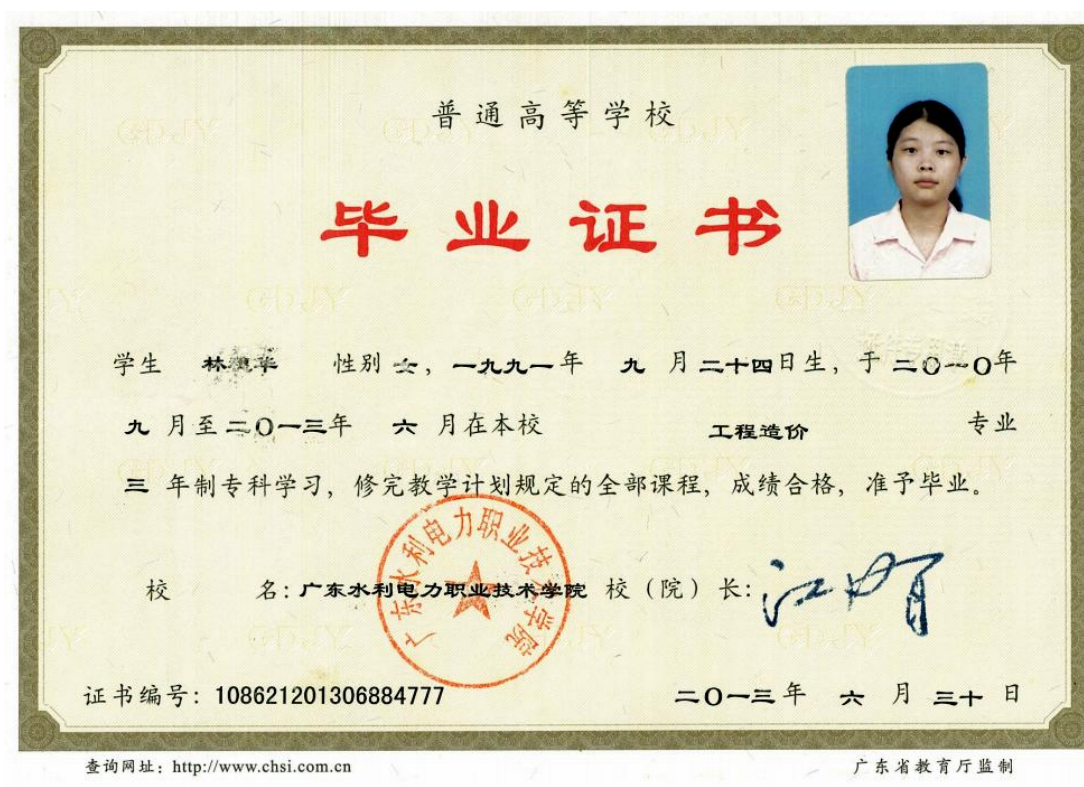 普通高等学校
毕业证书
学生 林 华 性别 女，一九九一年 九 月二十四日生，于二〇一〇年
九 月至二〇一三年 六 月在本校 工程造价 专业
三 年制专科学习，修完教学计划规定的全部课程，成绩合格，准予毕业。
广东水利电力职业技术学院
校 名：广东水利电力职业技术学院 校（院）长：
证书编号：108621201306884777 二〇一三年 六 月 三十 日
查询网址：http://www.chsi.com.cn 广东省教育厅监制